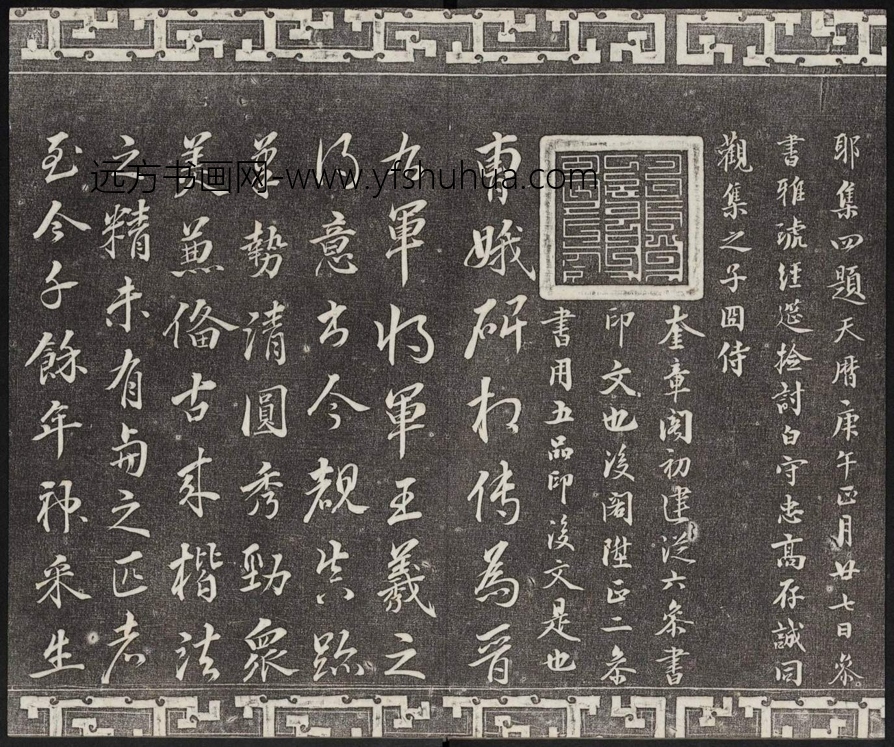 耶集四題天曆庚午正月廿七日叅
書雅琥經筵撿討白守忠高存誠同
觀集之子固侍
奎章閣初建從六条書
印文也後閣陞正二条
書用五品印後文是也
曹娥碑相传為晋
右軍将軍王羲之
得意書今覩真跡
筆勢清圓秀勁衆
美兼偹古来楷法
之精未有與之匹者
至今千餘年神采生
远方书画网-www.yfshuhua.com